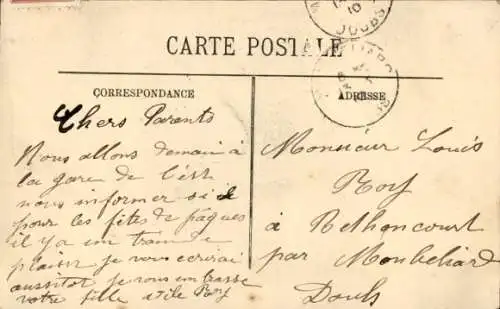 10
DOUBS
CARTE POSTALE
CORRESPONDANCE
ADRESSE
Chers Parents
Nous allons demain à
la gare de l'est
nous informer si
pour les fêtes de paques
il y a un train de
plaisir je vous ecrirai
aussitot je vous embrasse
votre fille Roy
Monsieur Louis
Roy
à Bethoncourt
par Monbeliard
Doubs